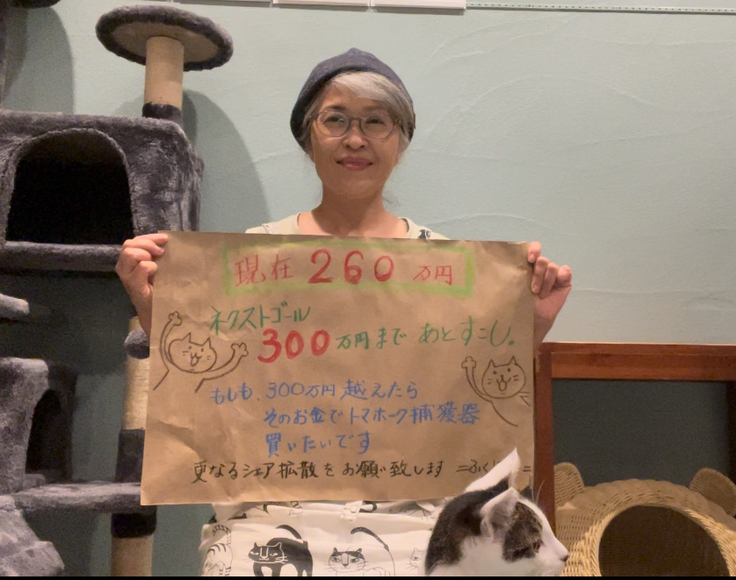 現在 260 万円
ネクストゴール
300万円まで あとすこし。
もしも、300万円越えたら
そのお金でトマホーク捕獲器
買いたいです
更なるシェア拡散をお願い致します